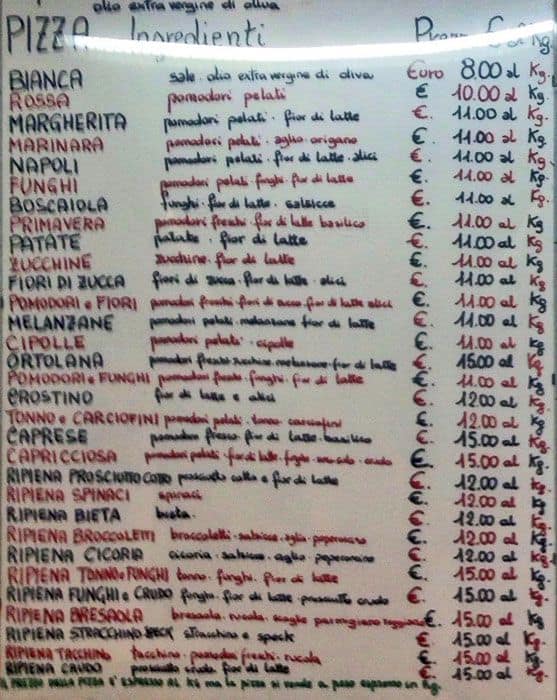 olio extra vergine di oliva
PIZZA Ingredienti Kg.
BIANCA sale. olio extra vergine di oliva Euro 8.00 al Kg.
ROSSA pomodori pelati € 10.00 al Kg.
MARGHERITA pomodori pelati. fior di latte €. 11.00 al Kg.
MARINARA pomodori pelati. aglio. origano €. 11.00 al Kg.
NAPOLI pomodori pelati. fior di latte. alici €. 11.00 al Kg.
FUNGHI pomodori pelati. funghi. fior di latte €. 11.00 al Kg.
BOSCAIOLA funghi. fior di latte. salsicce €. 11.00 al Kg.
PRIMAVERA pomodori freschi. fior di latte basilico €. 11.00 al Kg.
PATATE patate. fior di latte €. 11.00 al Kg.
ZUCCHINE zucchine. fior di latte €. 11.00 al Kg
FIORI DI ZUCCA fiori di zucca. fior di latte. alici €. 11.00 al Kg
POMODORI e FIORI pomodori freschi. fiori di zucca. fior di latte alici €. 11.00 al Kg
MELANZANE pomodori pelati. melanzane fior di latte €. 11.00 al Kg
CIPOLLE pomodori pelati. cipolle €. 11.00 al Kg
ORTOLANA pomodori freschi. zucchine. melanzane. fior di latte €. 15.00 al Kg
POMODORI e FUNGHI pomodori freschi. funghi. fior di latte €. 11.00 al Kg
CROSTINO fior di latte e alici €. 12.00 al Kg
TONNO e CARCIOFINI pomodori pelati. tonno. carciofini €. 12.00 al Kg
CAPRESE pomodoro fresco. fior di latte. basilico €. 15.00 al Kg
CAPRICCIOSA pomodori pelati. fior di latte. funghi. crudo €. 15.00 al Kg
RIPIENA PROSCIUTTO COTTO prosciutto cotto e fior di latte €. 12.00 al Kg
RIPIENA SPINACI spinaci €. 12.00 al Kg
RIPIENA BIETA bieta. €. 12.00 al Kg
RIPIENA BROCCOLETTI broccoletti. salsicce. aglio. peperoncino €. 12.00 al Kg
RIPIENA CICORIA cicoria. salsicce. aglio. peperoncino €. 12.00 al Kg
RIPIENA TONNO e FUNGHI tonno. funghi. fior di latte €. 15.00 al Kg
RIPIENA FUNGHI e CRUDO funghi. fior di latte. prosciutto crudo €. 15.00 al Kg.
RIPIENA BRESAOLA bresaola. rucola. scaglie parmigiano reggiano €. 15.00 al Kg
RIPIENA STRACCHINO SPECK stracchino e speck €. 15.00 al Kg
RIPIENA TACCHINO tacchino. pomodori freschi. rucola €. 15.00 al Kg
RIPIENA CRUDO prosciutto crudo fior di latte €. 15.00 al Kg
IL PREZZO DELLA PIZZA E' ESPRESSO AL KG ma la pizza si vende a peso espresso in Kg.